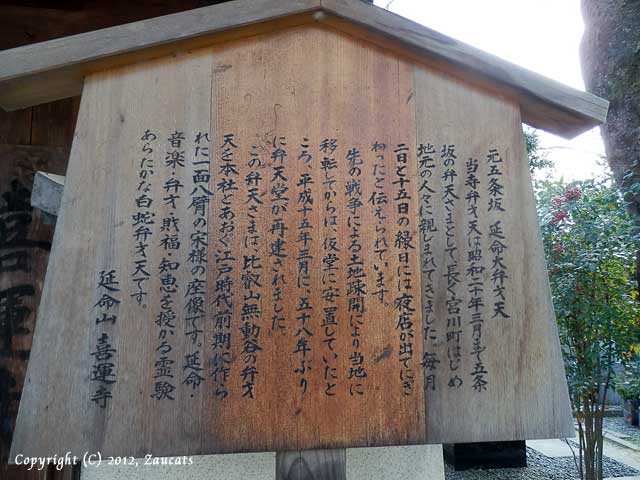 元五条坂 延命大弁才天
当寺弁才天は昭和二十年三月まで五条
坂の弁天さまとして、長く宮川町はじめ
地元の人々に親しまれてきました。毎月
二日と十五日の縁日には夜店が出てにぎ
わったと伝えられています。
先の戦争による土地疎開により当地に
移転してからは、仮堂に安置していたと
ころ、平成十五年三月に、五十八年ぶり
に弁天堂が再建されました。
この弁天さまは、比叡山無動谷の弁才
天を本社とあおぐ江戸時代前期に作ら
れた一面八臂の宋様の座像です。延命・
音楽・弁才・財福・知恵を授かる霊験
あらたかな白蛇弁才天です。
延命山 喜運寺
喜運
Copyright (C) 2012, Zaucats